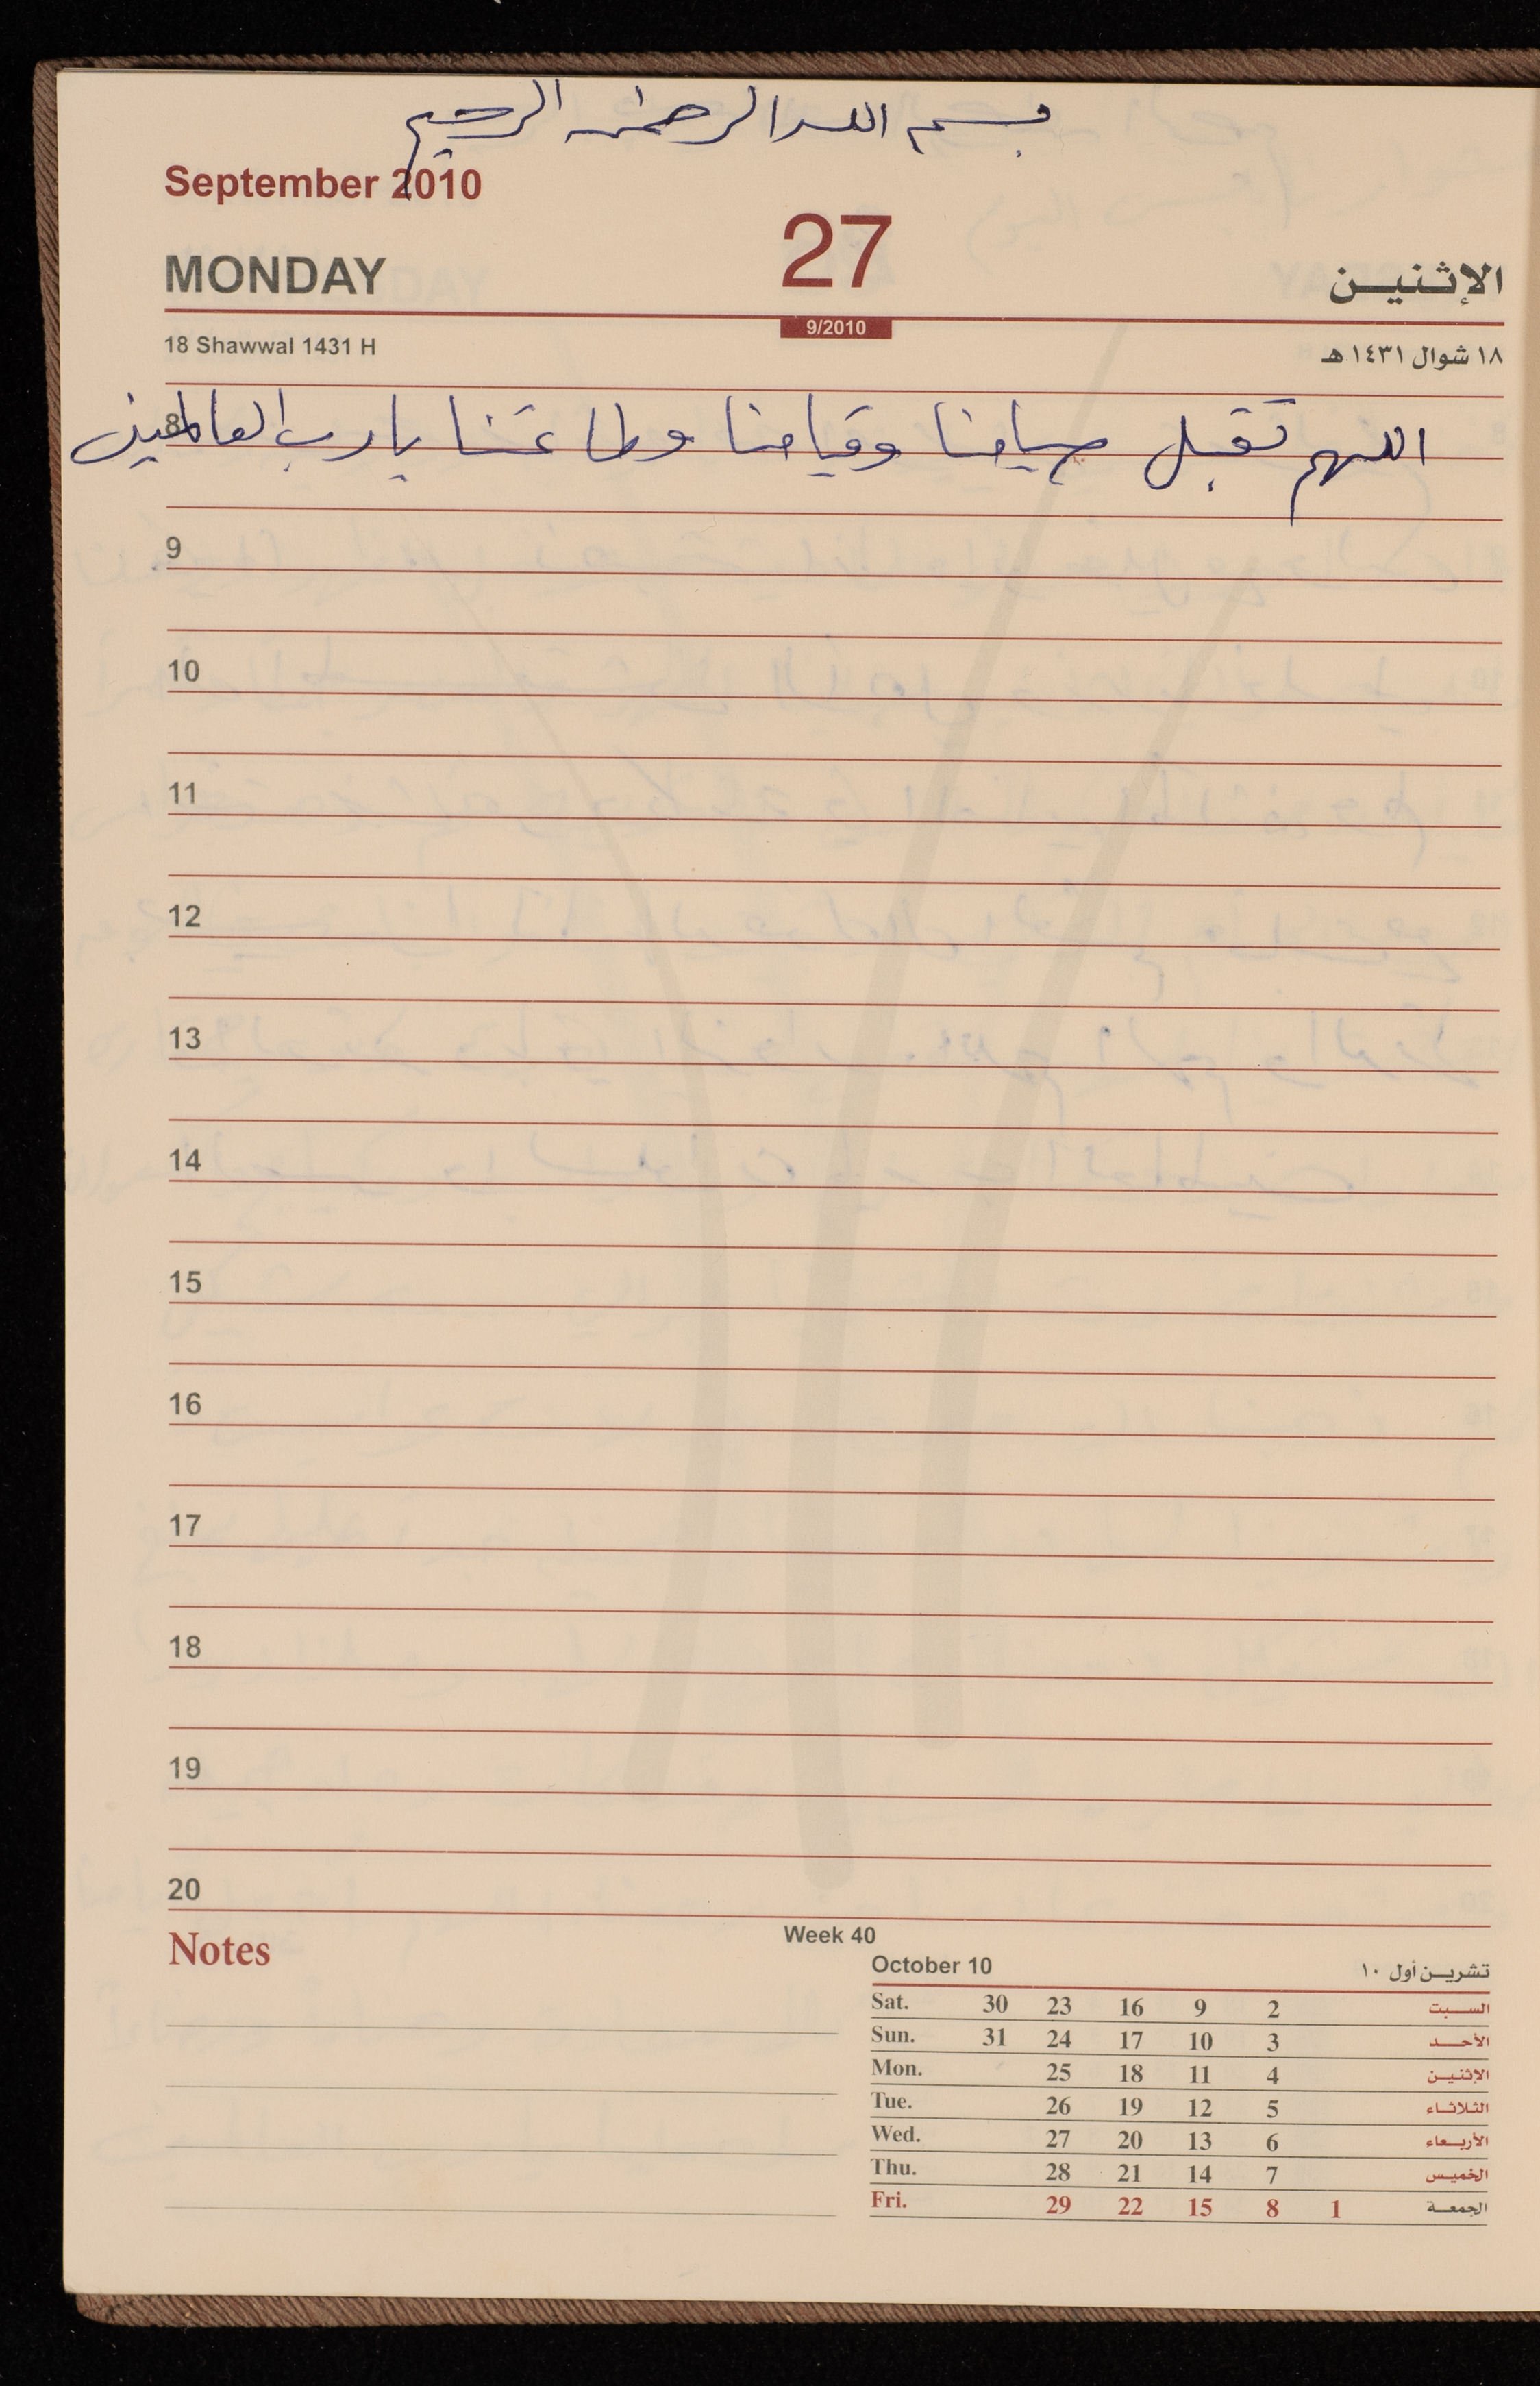 بسم الله الرحمن الرحيم
September 2010
MONDAY 27 الإثنين
9/2010
18 Shawwal 1431 H ١٨ شوال ١٤٣١ هـ
اللهم تقبل صيامنا وقيامنا وطاعتنا يا رب العالمين
8
9
10
11
12
13
14
15
16
17
18
19
20
Notes
Week 40
October 10 تشرين أول ١٠
Sat. 30 23 16 9 2 السبت
Sun. 31 24 17 10 3 الأحد
Mon. 25 18 11 4 الإثنين
Tue. 26 19 12 5 الثلاثاء
Wed. 27 20 13 6 الأربعاء
Thu. 28 21 14 7 الخميس
Fri. 29 22 15 8 1 الجمعة